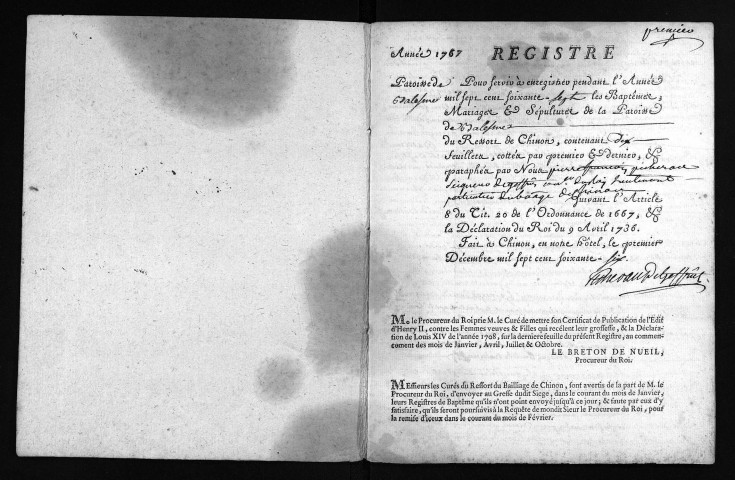 premier
Année 1767 REGISTRE
Paroisse de Pour servir à enregistrer pendant l'Année
mil sept cent soixante-sept les Baptêmes,
Mariages & Sépultures de la Paroisse
de
du Ressort de Chinon, contenant dix
feuillets, cottés par premier & dernier, &
paraphés par Nous pierre françois
Seigneur du Roy lieutenant
particulier Suivant l'Article
8 du Tit. 20 de l'Ordonnance de 1667, &
la Déclaration du Roi du 9 Avril 1736.
Fait à Chinon, en notre hôtel, le premier
Décembre mil sept cent soixante-six.
M. le Procureur du Roi prie M. le Curé de mettre son Certificat de Publication de l'Edit
d'Henry II, contre les Femmes veuves & Filles qui recélent leur grossesse, & la Déclara-
tion de Louis XIV de l'année 1708, sur la derniere feuille du présent Registre, au commen-
cement des mois de Janvier, Avril, Juillet & Octobre.
LE BRETON DE NUEIL,
Procureur du Roi.
MEssieurs les Curés du Ressort du Bailliage de Chinon, sont avertis de la part de M. le
Procureur du Roi, d'envoyer au Greffe dudit Siege, dans le courant du mois de Janvier,
leurs Registres de Baptême qu'ils n'ont point envoyé jusqu'à ce jour; & faute par eux d'y
satisfaire, qu'ils seront poursuivis à la Requête de mondit Sieur le Procureur du Roi, pour
la remise d'iceux dans le courant du mois de Février.